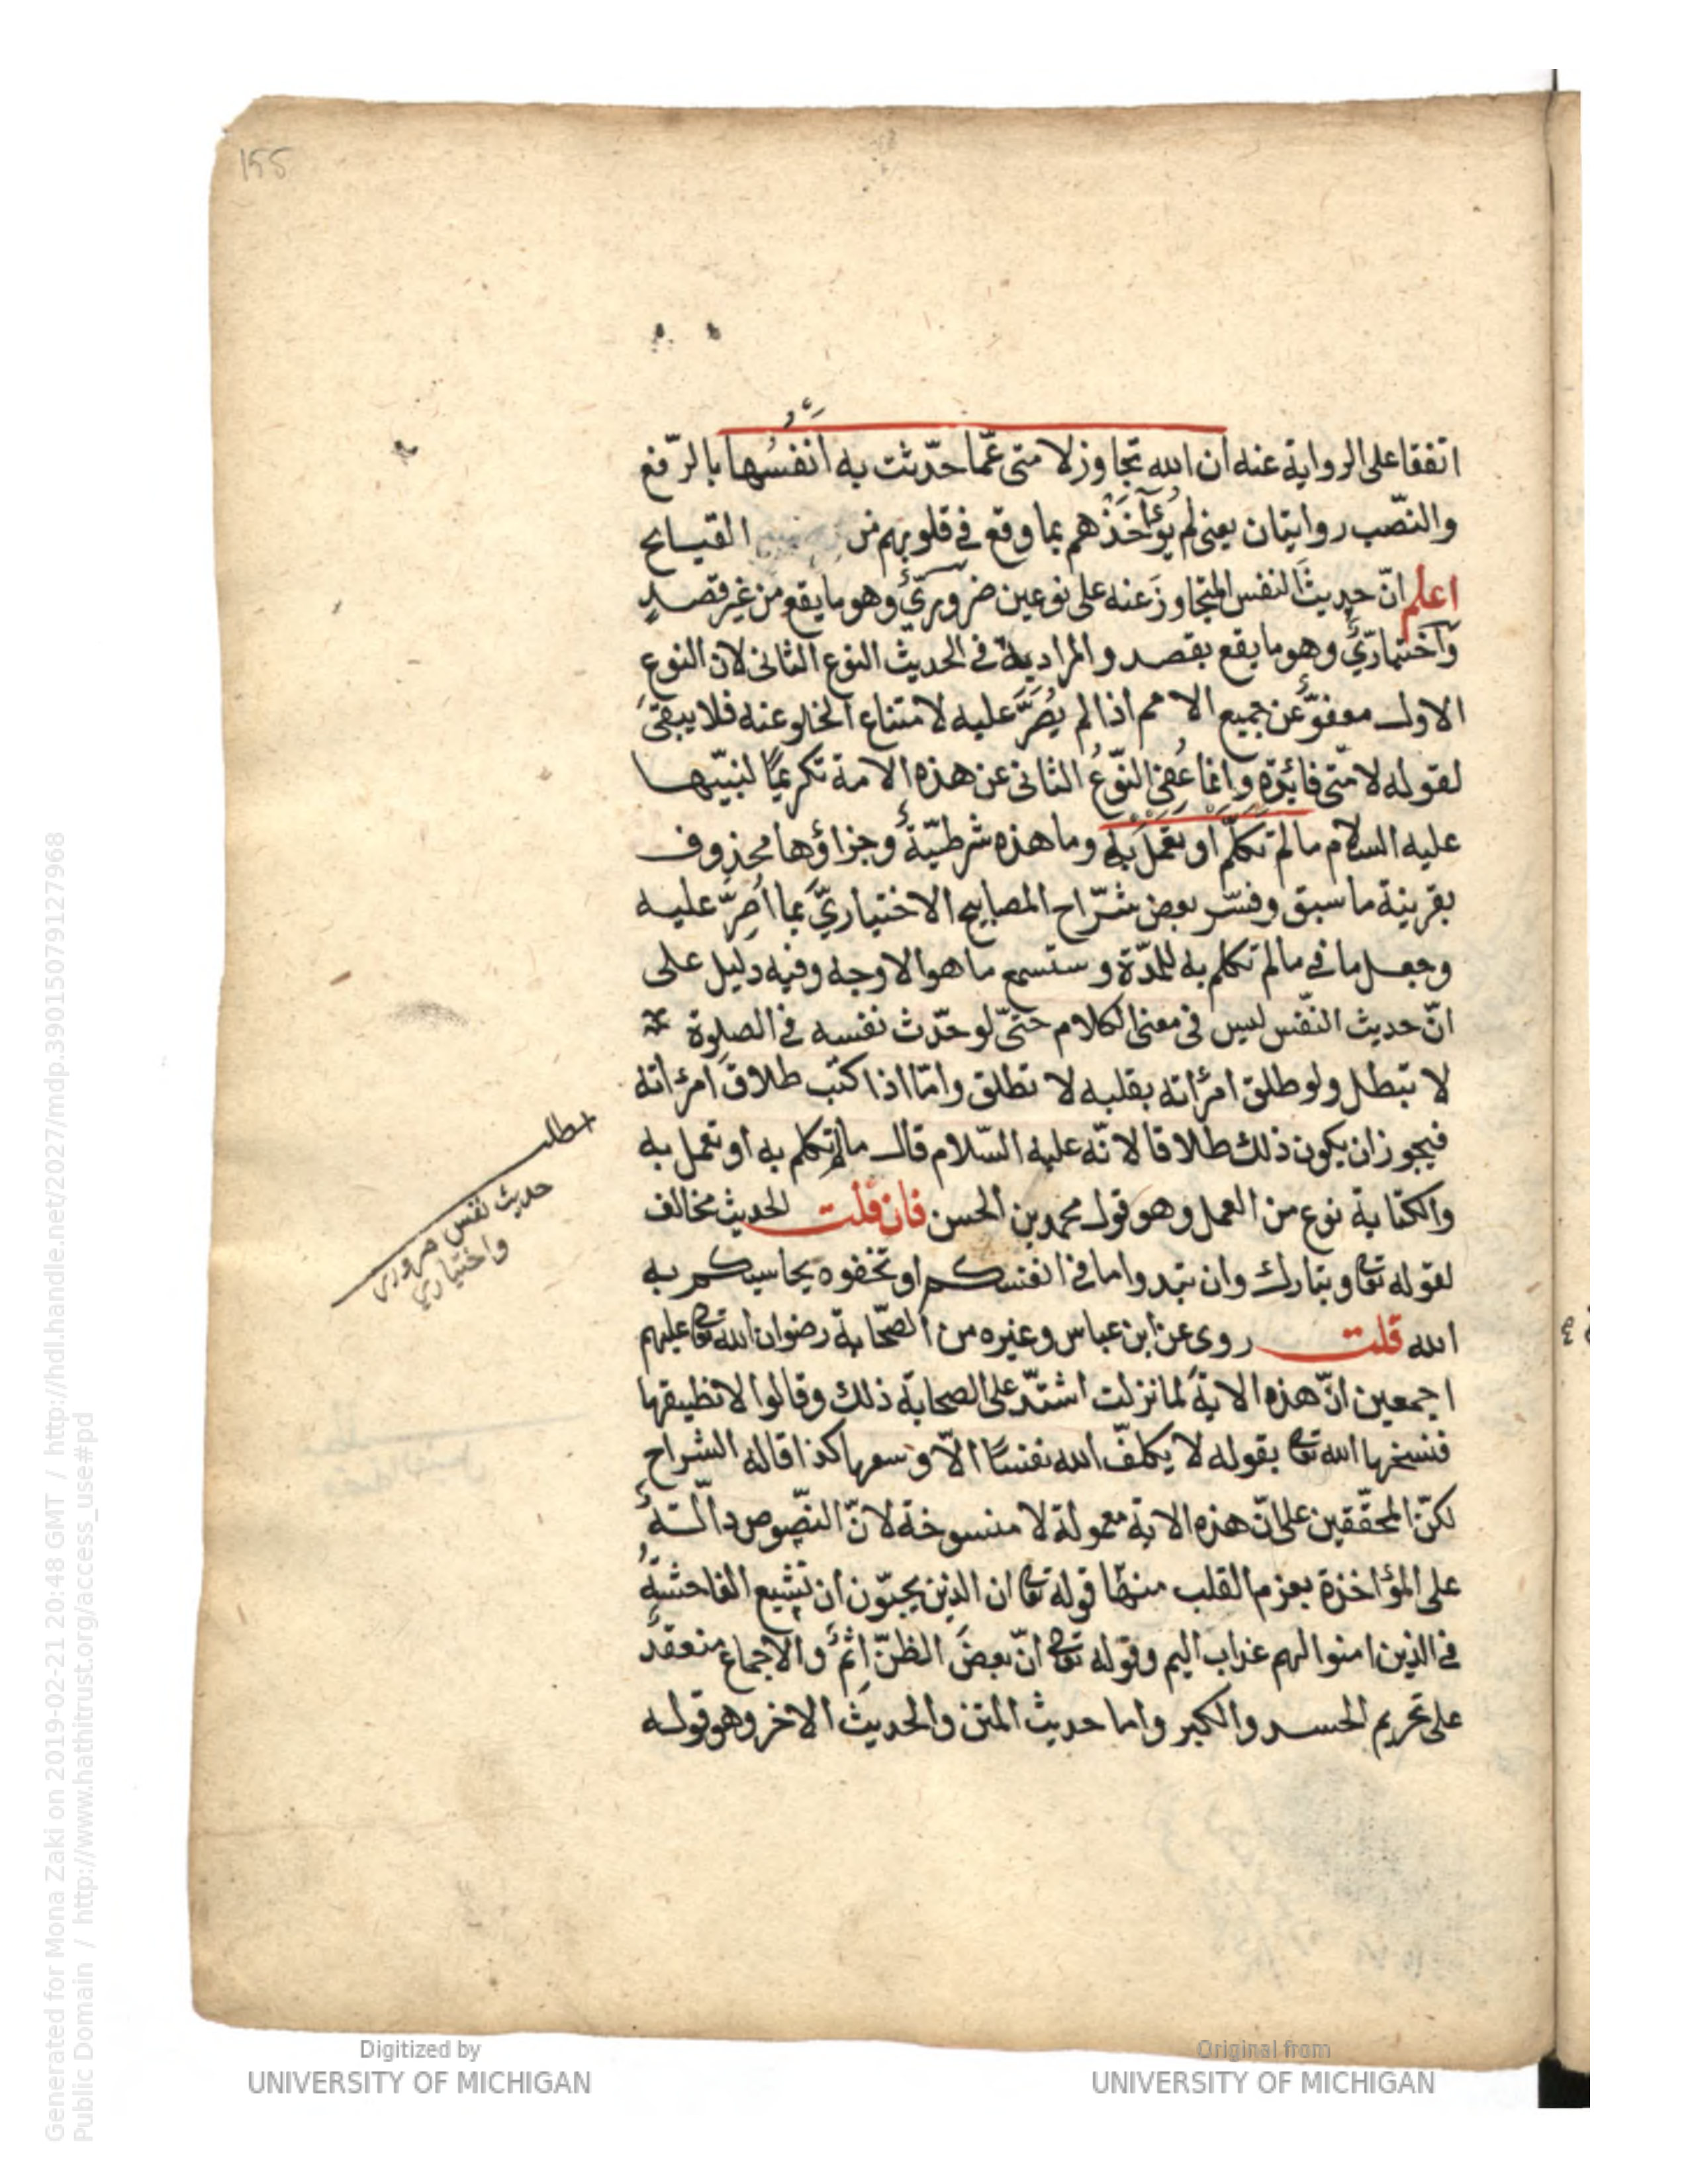 155
اتفقا على الرواية عنه ان الله تجاوز لامتى عمّا حدّثت به انفسُها بالرّفع
والنصّب روايتان يعنى لم يؤآخذهم بما وقع فى قلوبهم من القبايح
اعلم انّ حديث النفس المتجاوز عنه على نوعين ضروريّ وهو ما يقع من غير قصد
واختياريّ وهو ما يقع بقصد والمراد به فى الحديث النوع الثانى لان النوع
الاول معفوّ عن جميع الامم اذا لم يُصَرّ عليه لامتناع الخلو عنه فلا يبقى
لقوله لامّتى فائدة وانما عُفِيَ النّوعُ الثانى عن هذه الامة تكريمًا لنبيّها
عليه السلام مالم تكلّم او تعمل به وما هذه شرطيّة وجزاؤها محذوف
بقرينة ما سبق وفسّر بعض شرّاح المصابيح الاختياريَّ بما اُصِرّ عليه
وجعل ما فى مالم تكلم به للمدّة وستسمع ما هو الاوجه وفيه دليل على
انّ حديث النّفس ليس فى معنى الكلام حتىّ لو حدّث نفسه فى الصلوة
لا تبطل ولو طلق امرأته بقلبه لا تطلق وامّا اذا كتب طلاق امرأته
فيجوز ان يكون ذلك طلاقا لانّه عليه السّلام قال مالم تكلم به او تعمل به
والكتابة نوع من العمل وهو قول محمد بن الحسن فان قلت الحديث مخالف
لقوله تعا وتبارك وان تبدوا ما فى انفسكم او تخفوه يحاسبكم به
الله قلت روى عن ابن عباس وغيره من الصّحابة رضوان الله تعا عليهم
اجمعين انّ هذه الاية لما نزلت اشتدّ على الصحابة ذلك وقالوا لا نطيقها
فنسخها الله تعا بقوله لا يكلّف الله نفسًا الّا وسعها كذا قاله الشراح
لكنّ المحقّقين على انّ هذه الاية معمولة لا منسوخة لانّ النصّوص دالّة
على المؤاخذة بعزم القلب منها قوله تعا ان الذين يحبّون ان تشيع الفاحشة
فى الذين امنوا لهم عذاب اليم وقوله تعا انّ بعضَ الظنّ اثم والاجماع منعقد
على تحريم الحسد والكبر واما حديث المتن والحديث الاخر وهو قوله
مطلب
حديث نفس ضرورى
واختياري
Digitized by
UNIVERSITY OF MICHIGAN
Original from
UNIVERSITY OF MICHIGAN
Generated for Mona Zaki on 2019-02-21 20:48 GMT / http://hdl.handle.net/2027/mdp.39015079127968
Public Domain / http://www.hathitrust.org/access_use#pd